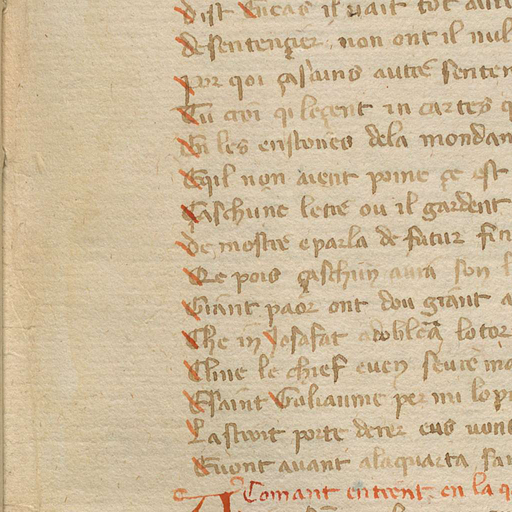 Dist Eneas il nait tot au
De sentençier non ont il nul
Por qoi çascuns autre senten
Tu croi qi leçent in cartes q
Ei les enstories dela mondan
E qil non aient poine çe est
Çaschune letre ou il gardent
De mostre e parla de futur fin
Qe pois çaschun aura son
Giant paor ont dou giant a
Che in Josafat adoblera lo tor
Cline le chief even seure ma
E saint Guliaume per mi lo pi
La stroit porte derer eus
E vont avant ala quarta
Comant entrent en la q